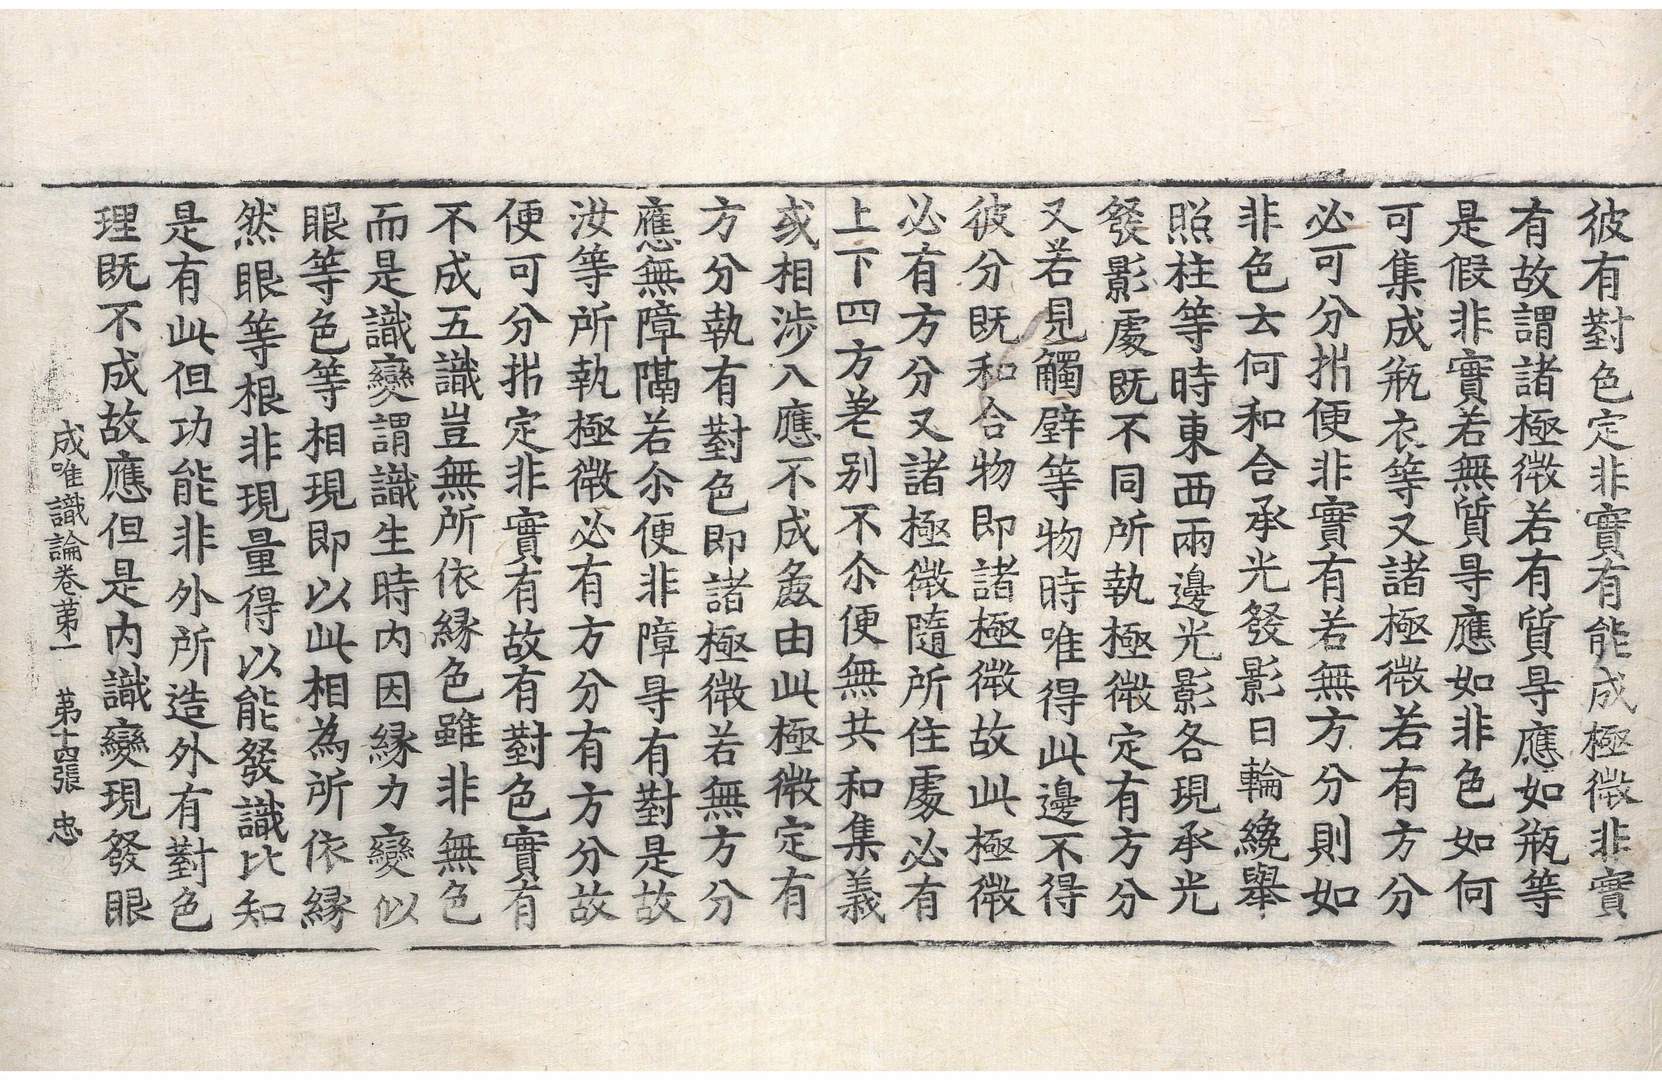 彼有對色定非實有能成極微非實
有故謂諸極微若有質㝵應如瓶等
是假非實若無質㝵應如非色如何
可集成瓶衣等又諸極微若有方分
必可分㭊便非實有若無方分則如
非色云何和合承光發影日輪纔舉
照柱等時東西兩邊光影各現承光
發影處既不同所執極微定有方分
又若見觸壁等物時唯得此邊不得
彼分既和合物即諸極微故此極微
必有方分又諸極微隨所住處必有
上下四方差別不尒便無共和集義
或相涉入應不成麁由此極微定有
方分執有對色即諸極微若無方分
應無障隔若尒便非障㝵有對是故
汝等所執極微必有方分有方分故
便可分㭊定非實有故有對色實有
不成五識豈無所依緣色雖非無色
而是識變謂識生時內因緣力變似
眼等色等相現即以此相為所依緣
然眼等根非現量得以能發識比知
是有此但功能非外所造外有對色
理既不成故應但是內識變現發眼
成唯識論卷苐一　苐十四張　忠